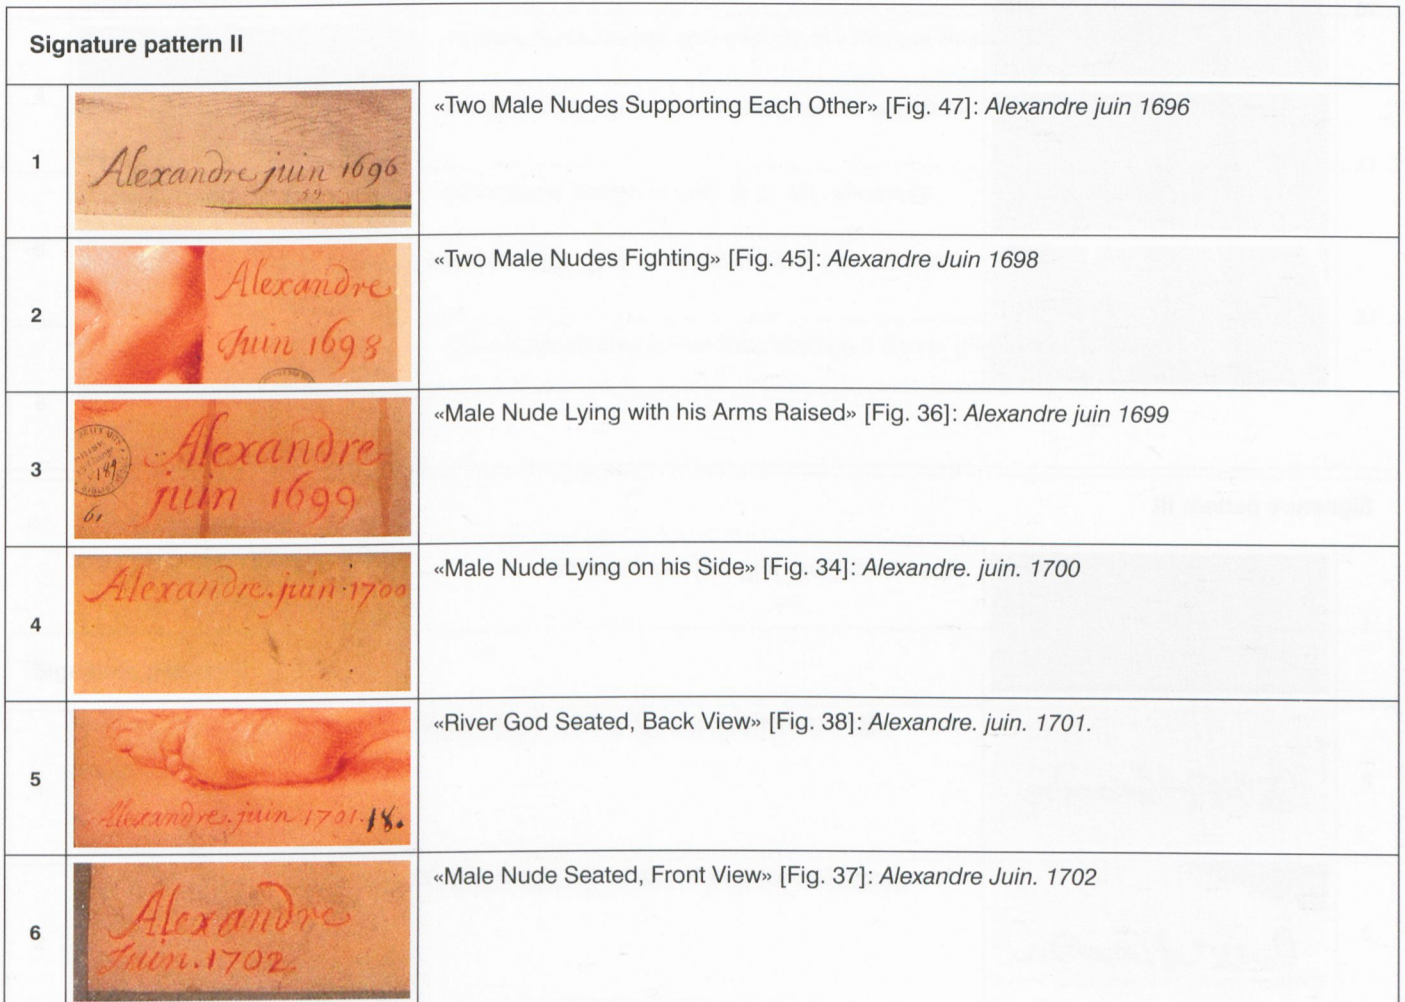 Signature pattern II
1
Alexandre juin 1696
59
«Two Male Nudes Supporting Each Other» [Fig. 47]: Alexandre juin 1696
2
Alexandre
Juin 1698
«Two Male Nudes Fighting» [Fig. 45]: Alexandre Juin 1698
3
Alexandre
juin 1699
189
61
«Male Nude Lying with his Arms Raised» [Fig. 36]: Alexandre juin 1699
4
Alexandre. juin. 1700
«Male Nude Lying on his Side» [Fig. 34]: Alexandre. juin. 1700
5
Alexandre. juin. 1701. 18.
«River God Seated, Back View» [Fig. 38]: Alexandre. juin. 1701.
6
Alexandre
Juin. 1702
«Male Nude Seated, Front View» [Fig. 37]: Alexandre Juin. 1702